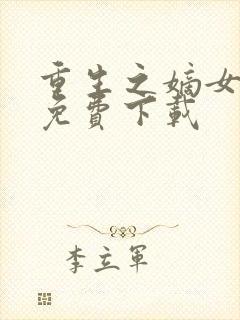 重生之嫡女
免費下載
李立軍